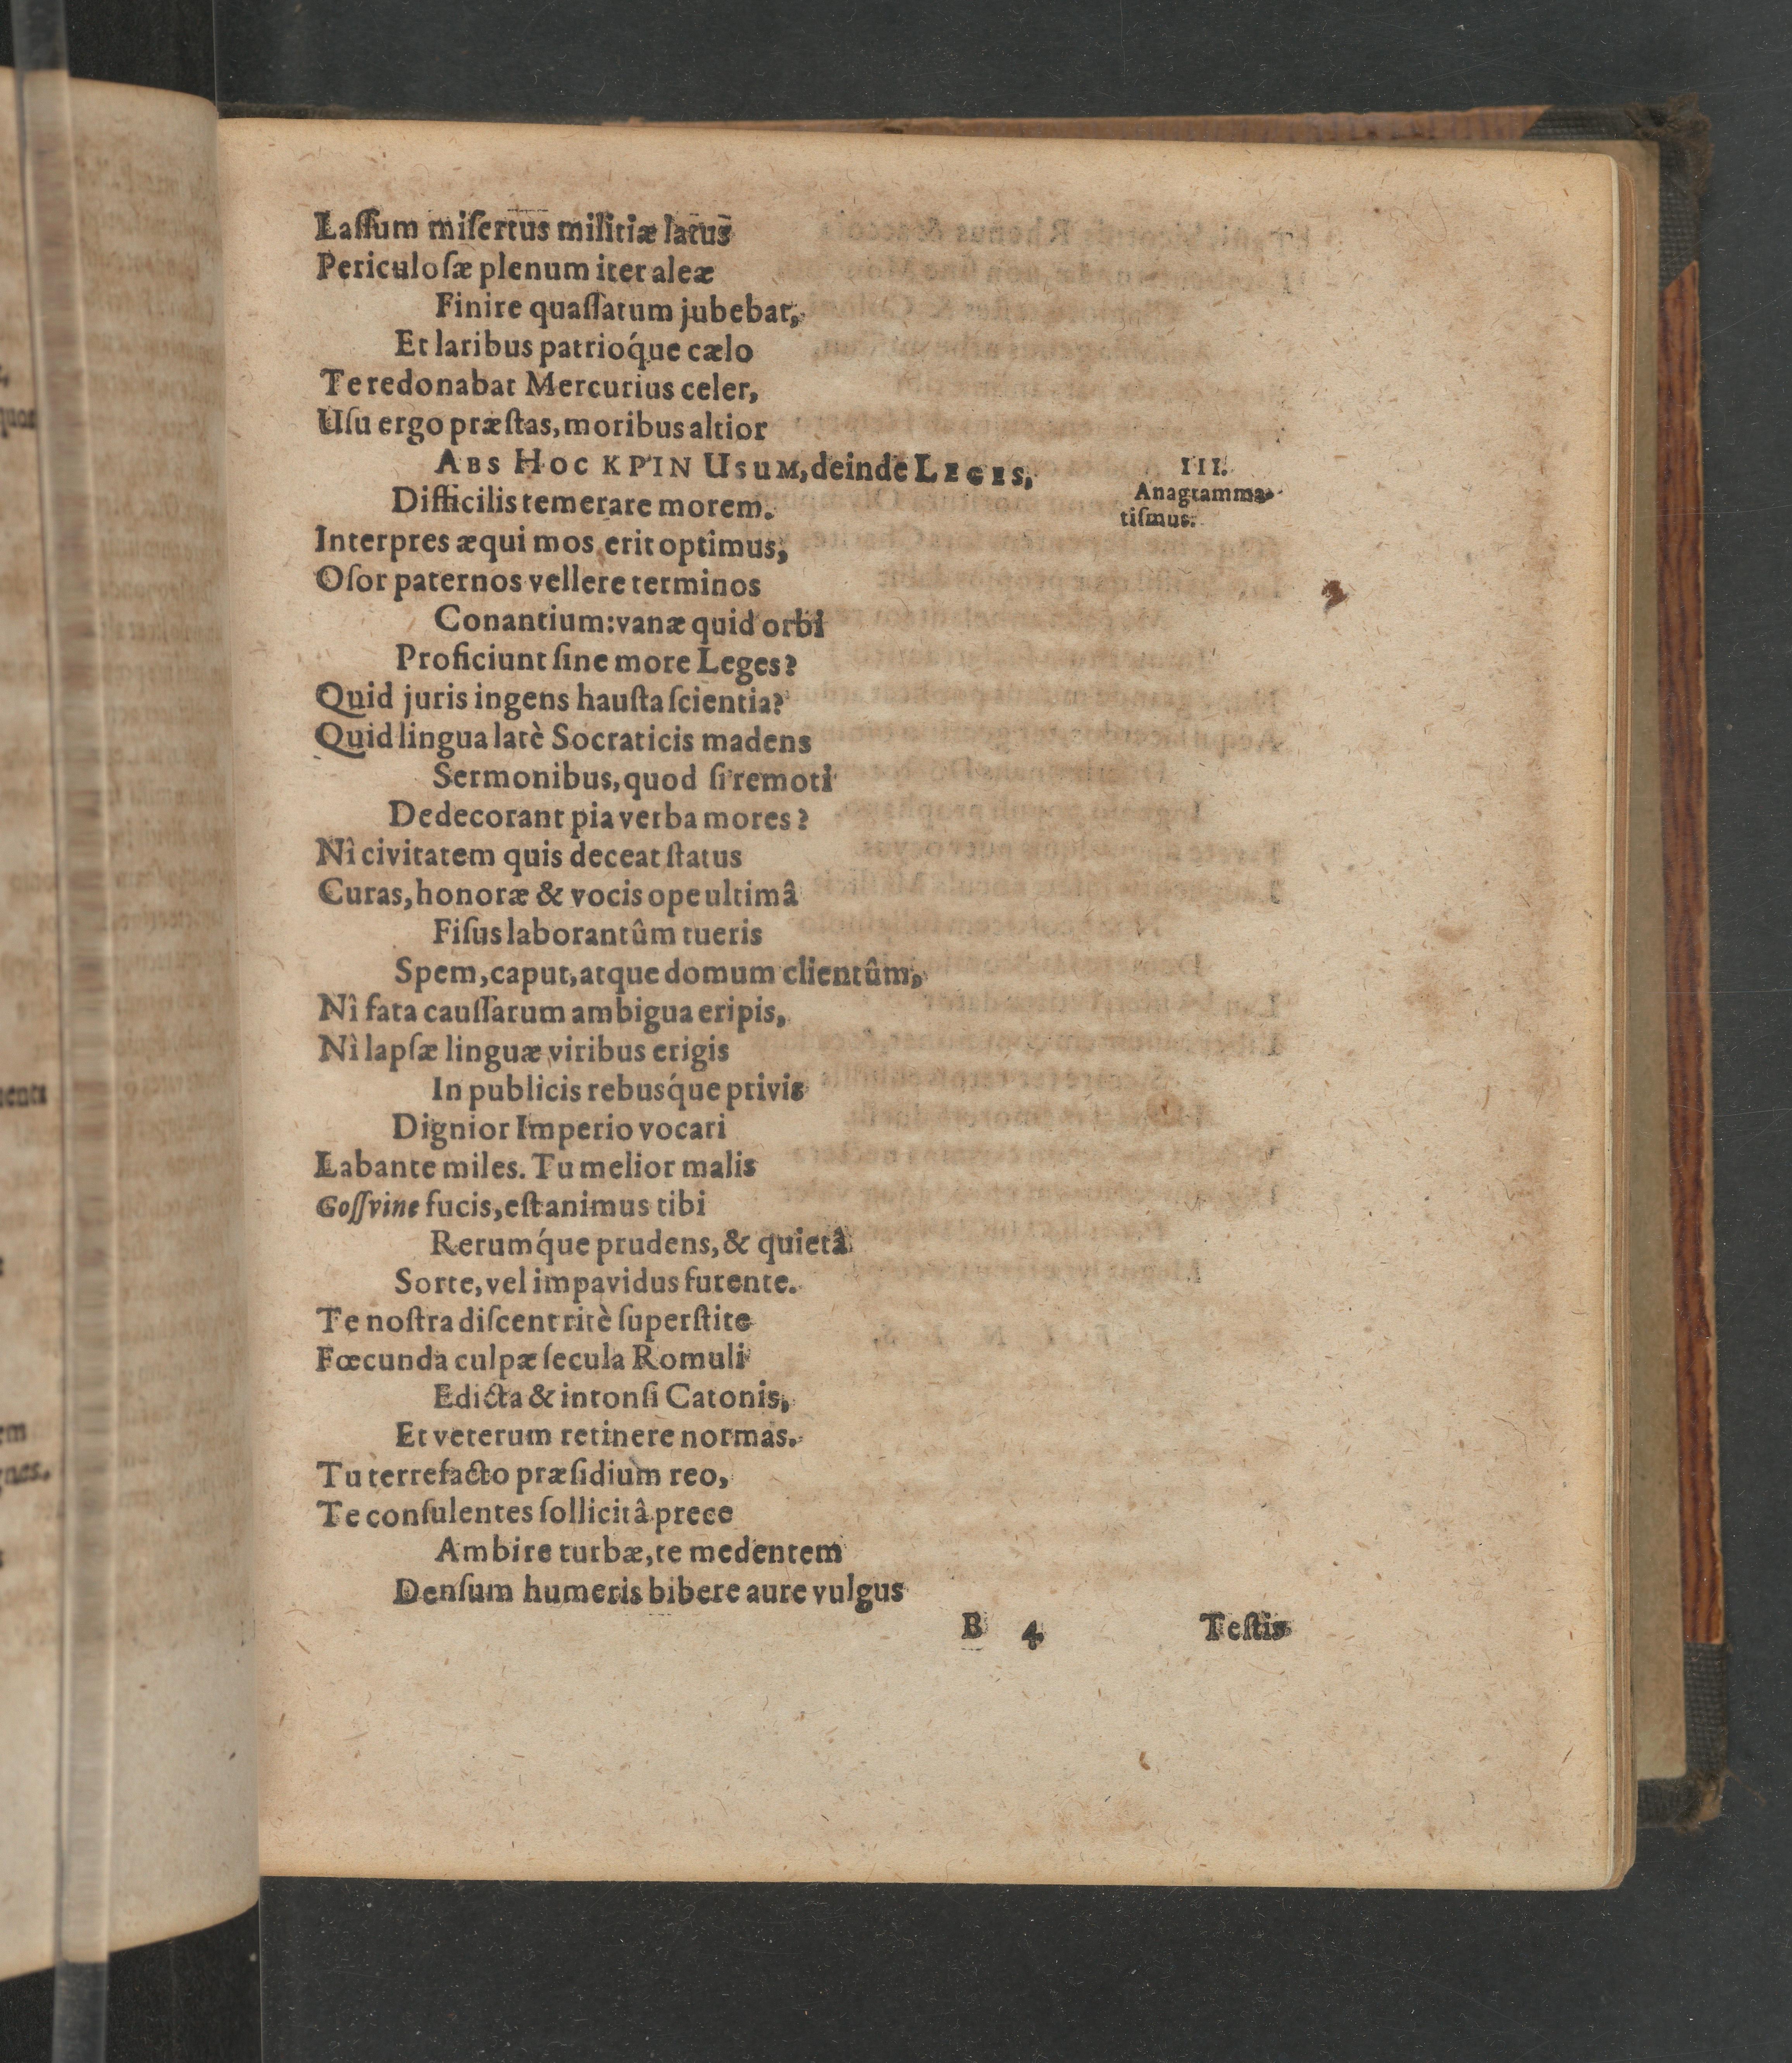 Laſſum miſertus militiæ latus
Periculoſæ plenum iter aleæ
Finire quaſſatum jubebat,
Et laribus patrioq́ue cælo
Te redonabat Mercurius celer,
Uſu ergo præſtas, moribus altior
ABS HOC ΚΡΊΝ USUM, deinde LEGES,
III.
Anagramma-
tiſmus.
Difficilis temerare morem.
Interpres æqui mos erit optimus,
Oſor paternos vellere terminos
Conantium: vanæ quid orbi
Proficiunt ſine more Leges?
Quid juris ingens hauſta ſcientia?
Quid lingua latè Socraticis madens
Sermonibus, quod ſi remoti
Dedecorant pia verba mores?
Nî civitatem quis deceat ſtatus
Curas, honoræ & vocis ope ultimâ
Fiſus laborantûm tueris
Spem, caput, atque domum clientûm,
Nî fata cauſſarum ambigua eripis,
Nì lapſæ linguæ viribus erigis
In publicis rebusq́ue privis
Dignior Imperio vocari
Labante miles. Tu melior malis
Goſſvine fucis, eſt animus tibi
Rerumq́ue prudens, & quietâ
Sorte, vel impavidus furente.
Te noſtra diſcent ritè ſuperſtite
Fœcunda culpæ ſecula Romuli
Edicta & intonſi Catonis,
Et veterum retinere normas.
Tu terrefacto præſidium reo,
Te conſulentes ſollicitâ prece
Ambire turbæ, te medentem
Denſum humeris bibere aure vulgus
B 4 Teſtis